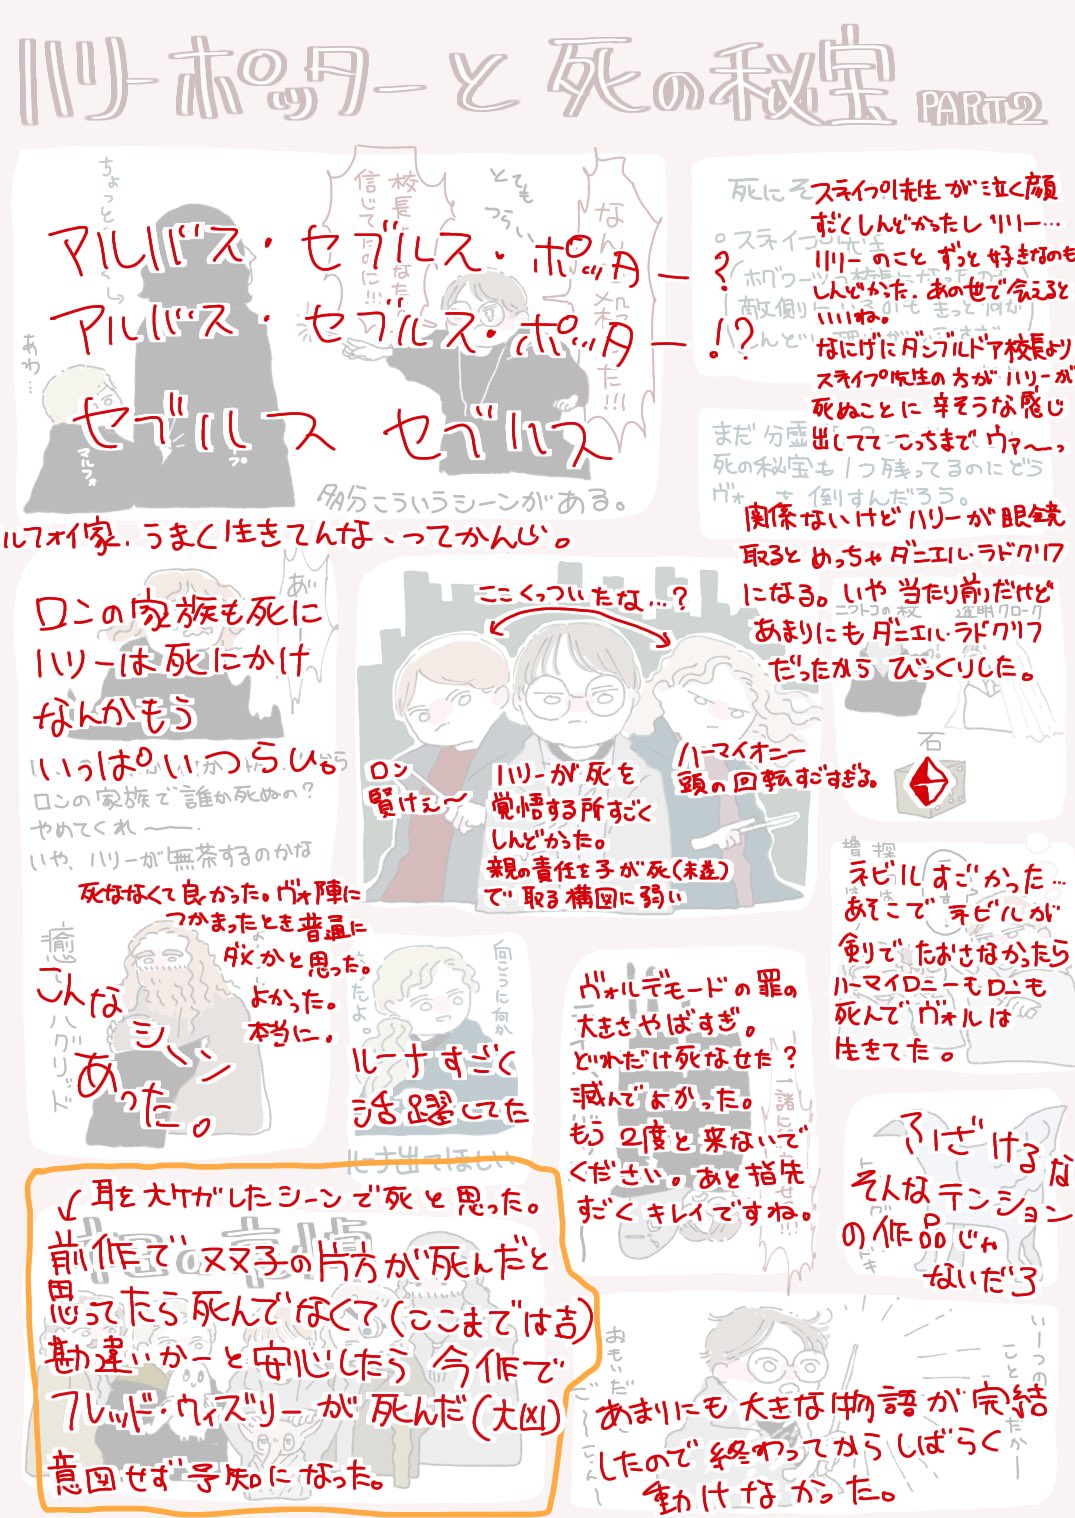 ハリーポッターと死の秘宝 PART2
アルバス・セブルス・ポッター?
アルバス・セブルス・ポッター!?
セブルス セブルス
とても
つらい
だからこういうシーンがある。
ルフォイ家、うまく生きてんな、ってかんじ。
スネイプ先生が泣く顔
すごくしんどかったしリリー…
リリーのことずっと好きなのも
しんどかった。あの世で会えると
いいね。
なにげにダンブルドア校長より
スネイプ先生の方がハリーが
死ぬことに辛そうな感じ
出しててこっちまでウァ〜っ
まだ分霊
死の秘宝も1つ残ってるのにどう
倒すんだろう。
関係ないけどハリーが眼鏡
取るとめっちゃダニエル・ラドクリフ
になる。いや当たり前だけど
あまりにもダニエル・ラドクリフ
だったからびっくりした。
ニワトコの杖
透明クローク
石
ロンの家族も死に
ハリーは死にかけ
なんかもう
いっぱいつらい。
ロンの家族で誰か死ぬの?
やめてくれ――.
いや、ハリーが無茶するのかな
ここくっついたな…?
ロン
賢けぇ〜
ハリーが死を
覚悟する所すごく
しんどかった。
親の責任を子が死(未遂)
で取る構図に弱い
ハーマイオニー
頭の回転すごすぎる。
ネビルすごかった…
あそこでネビルが
剣でたおさなかったら
ハーマイロニーもロンも
死んでヴォルは
生きてた。
死ななくて良かった。ヴォ陣に
つかまったとき普通に
ダメかと思った。
よかった。
本当に。
癒
ハグリッド
こんな
シーン
あった。
向こうに何か
ルーナすごく
活躍してた
ルーナ出てほしい
ヴォルデモードの罪の
大きさやばすぎ。
どれだけ死なせた?
滅んでよかった。
もう2度と来ないで
ください。あと指先
すごくキレイですね。
ふざけるな
そんなテンション
の作品じゃ
ないだろ
↙耳を大ケガしたシーンで死と思った。
前作で双子の片方が死んだと
思ってたら死んでなくて(ここまでは吉)
勘違いかーと安心したら今作で
フレッド・ウィズリーが死んだ(大凶)
意図せず予知になった。
あまりにも大きな物語が完結
したので終わってからしばらく
動けなかった。